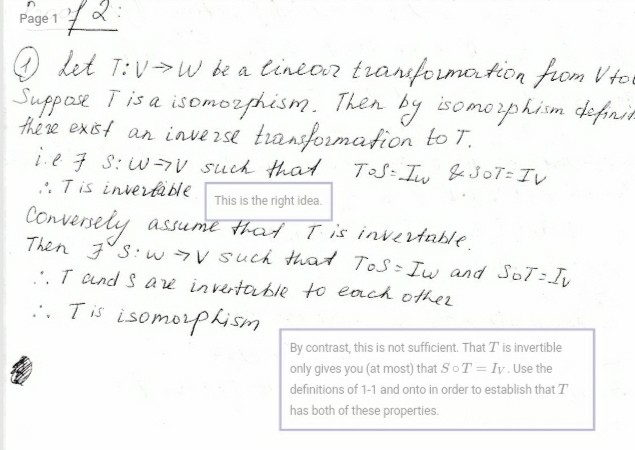 Page 1 of 2:
① Let T: V → W be a linear transformation from V to
Suppose T is a isomorphism. Then by isomorphism
there exist an inverse transformation to T.
i.e ∃ S: W → V such that T∘S = I_W & S∘T = I_V
∴ T is invertible
This is the right idea.
Conversely assume that T is invertable.
Then ∃ S: W → V such that T∘S = I_W and S∘T = I_V
∴ T and S are invertable to each other
∴ T is isomorphism
By contrast, this is not sufficient. That T is invertible
only gives you (at most) that S ∘ T = I_V. Use the
definitions of 1-1 and onto in order to establish that T
has both of these properties.